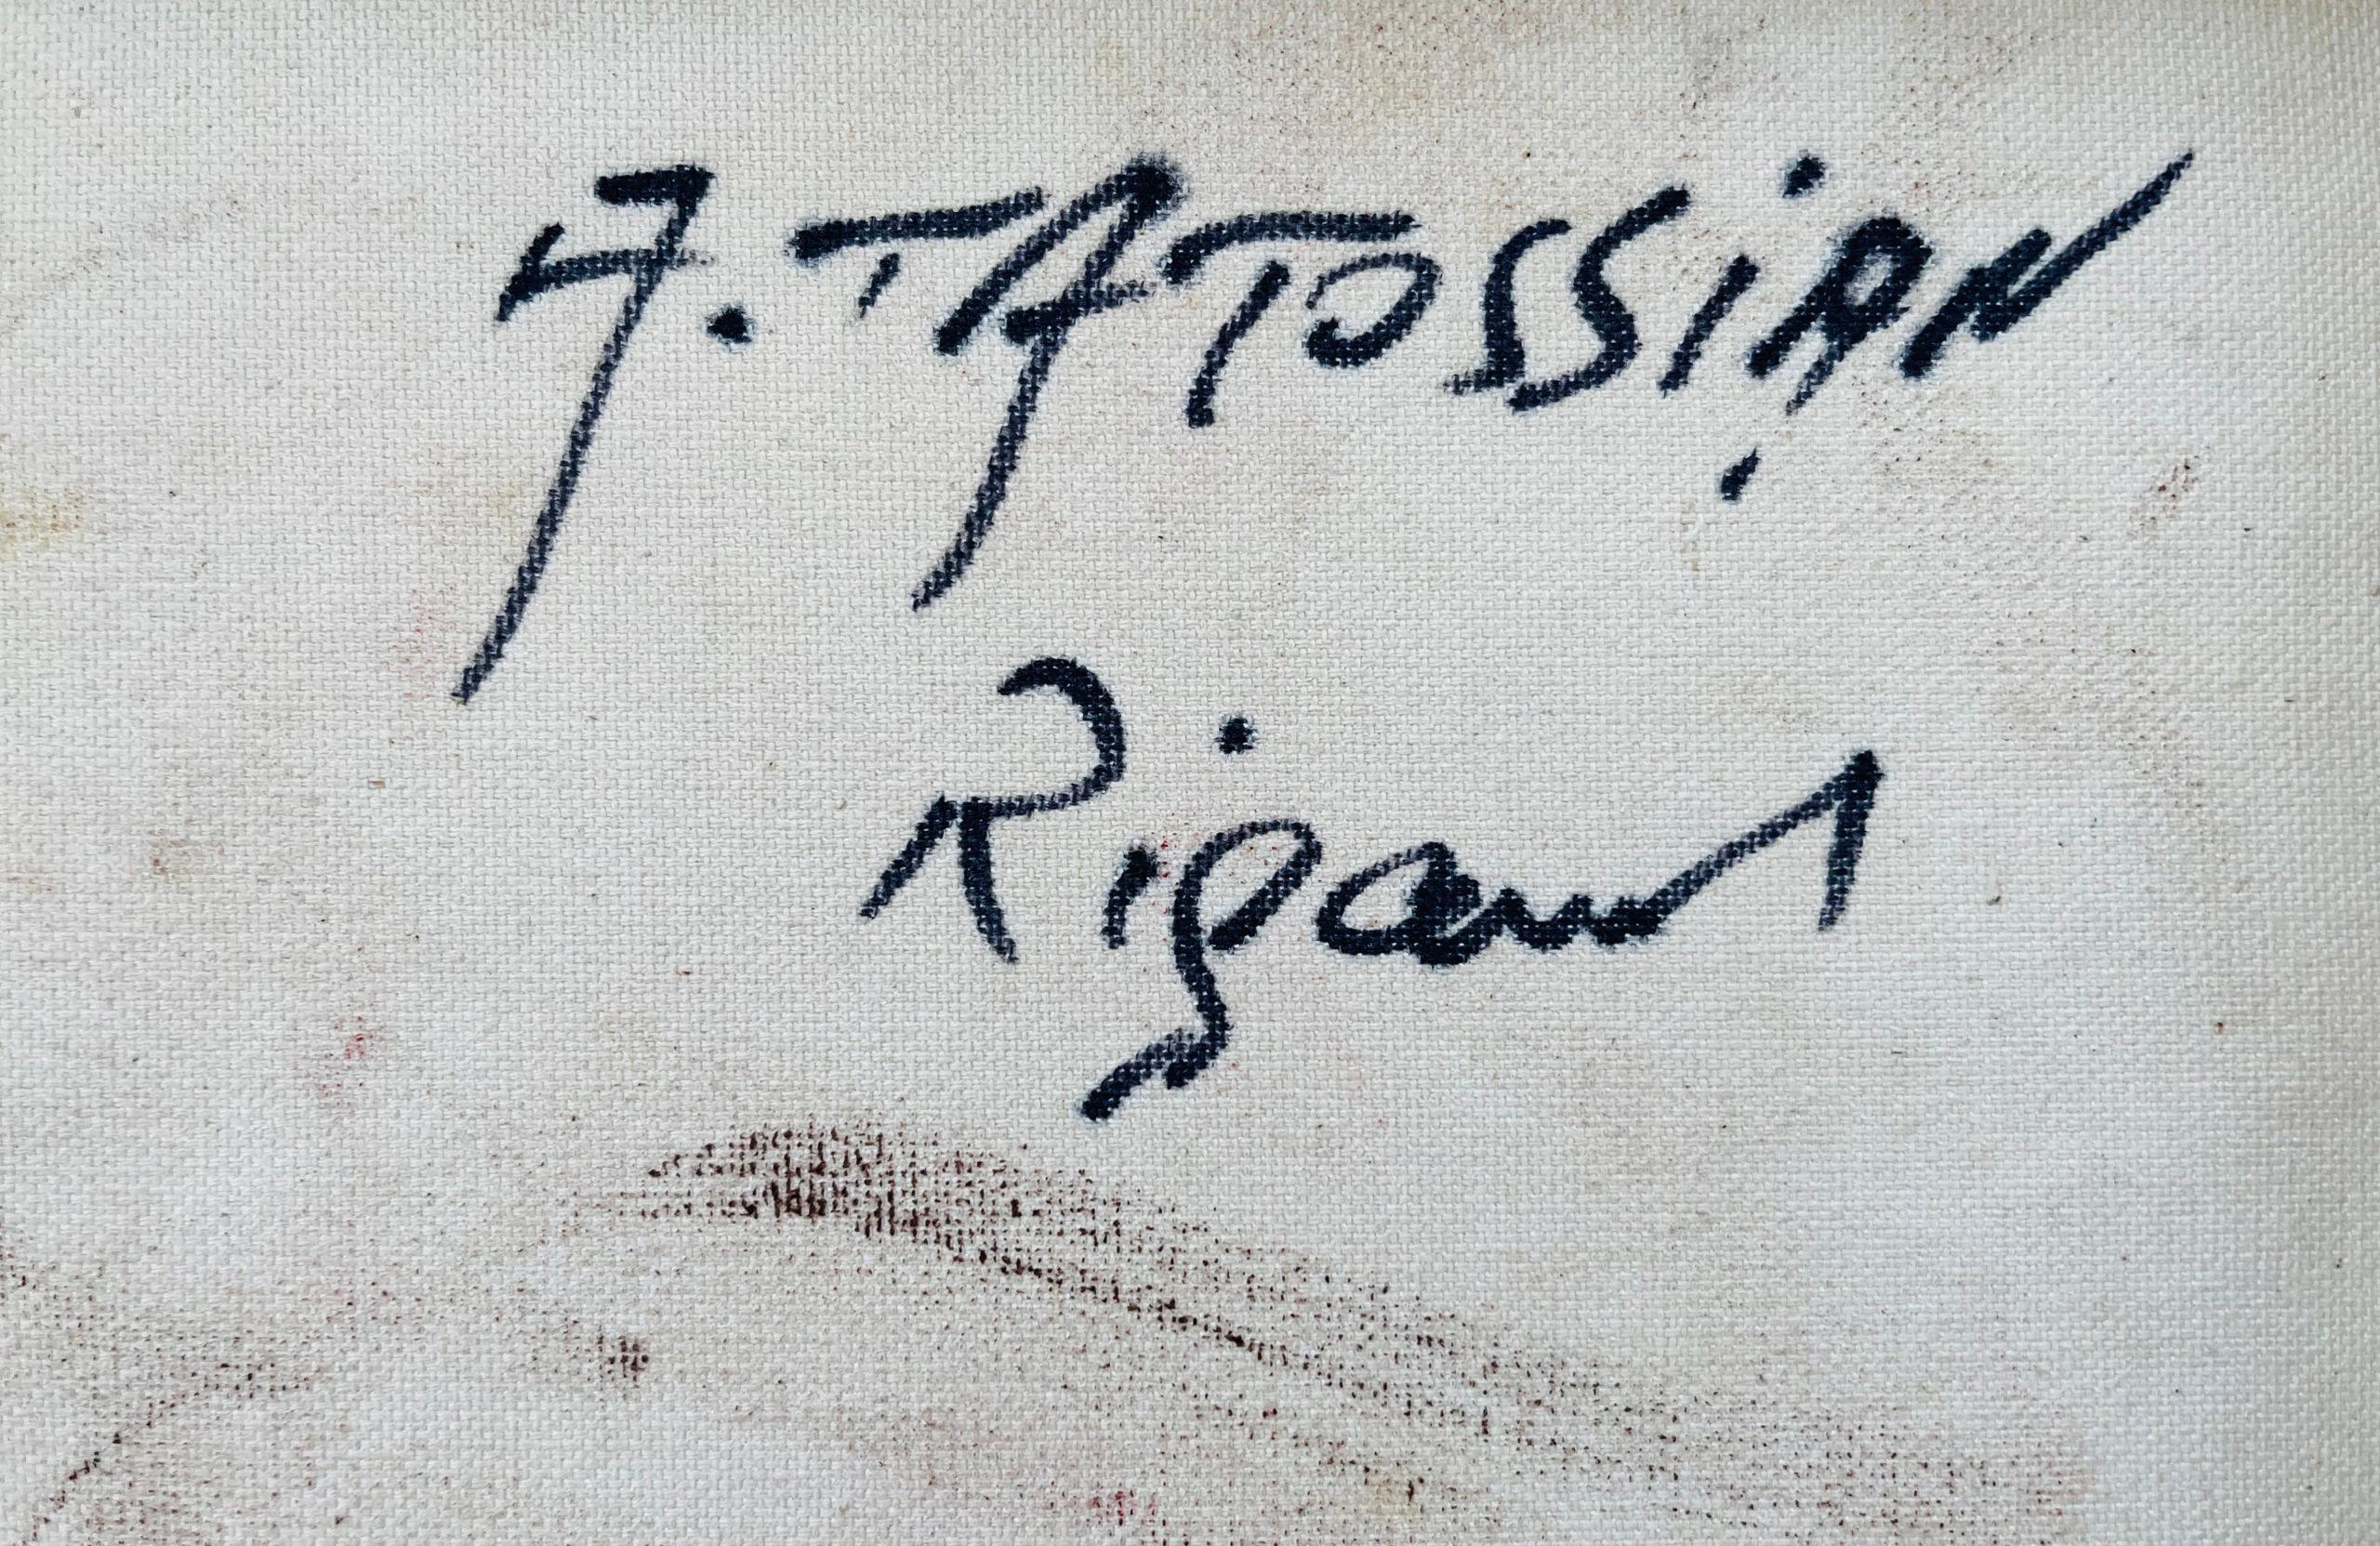 A. TATOSSiAN
Rigaud